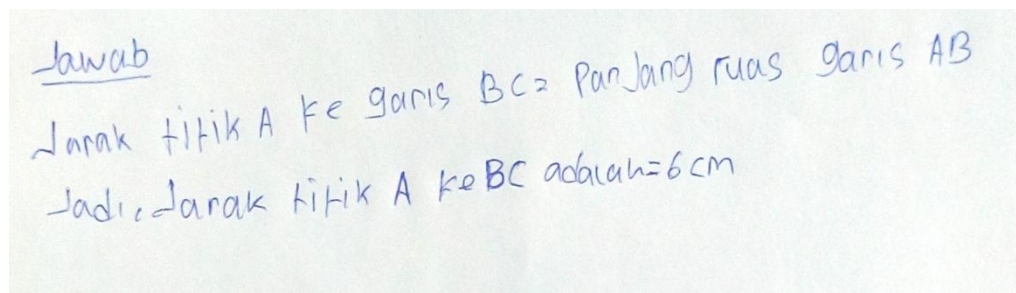 Jawab
Jarak titik A ke garis BC = Panjang ruas garis AB
Jadi, Jarak titik A ke BC adalah = 6 cm